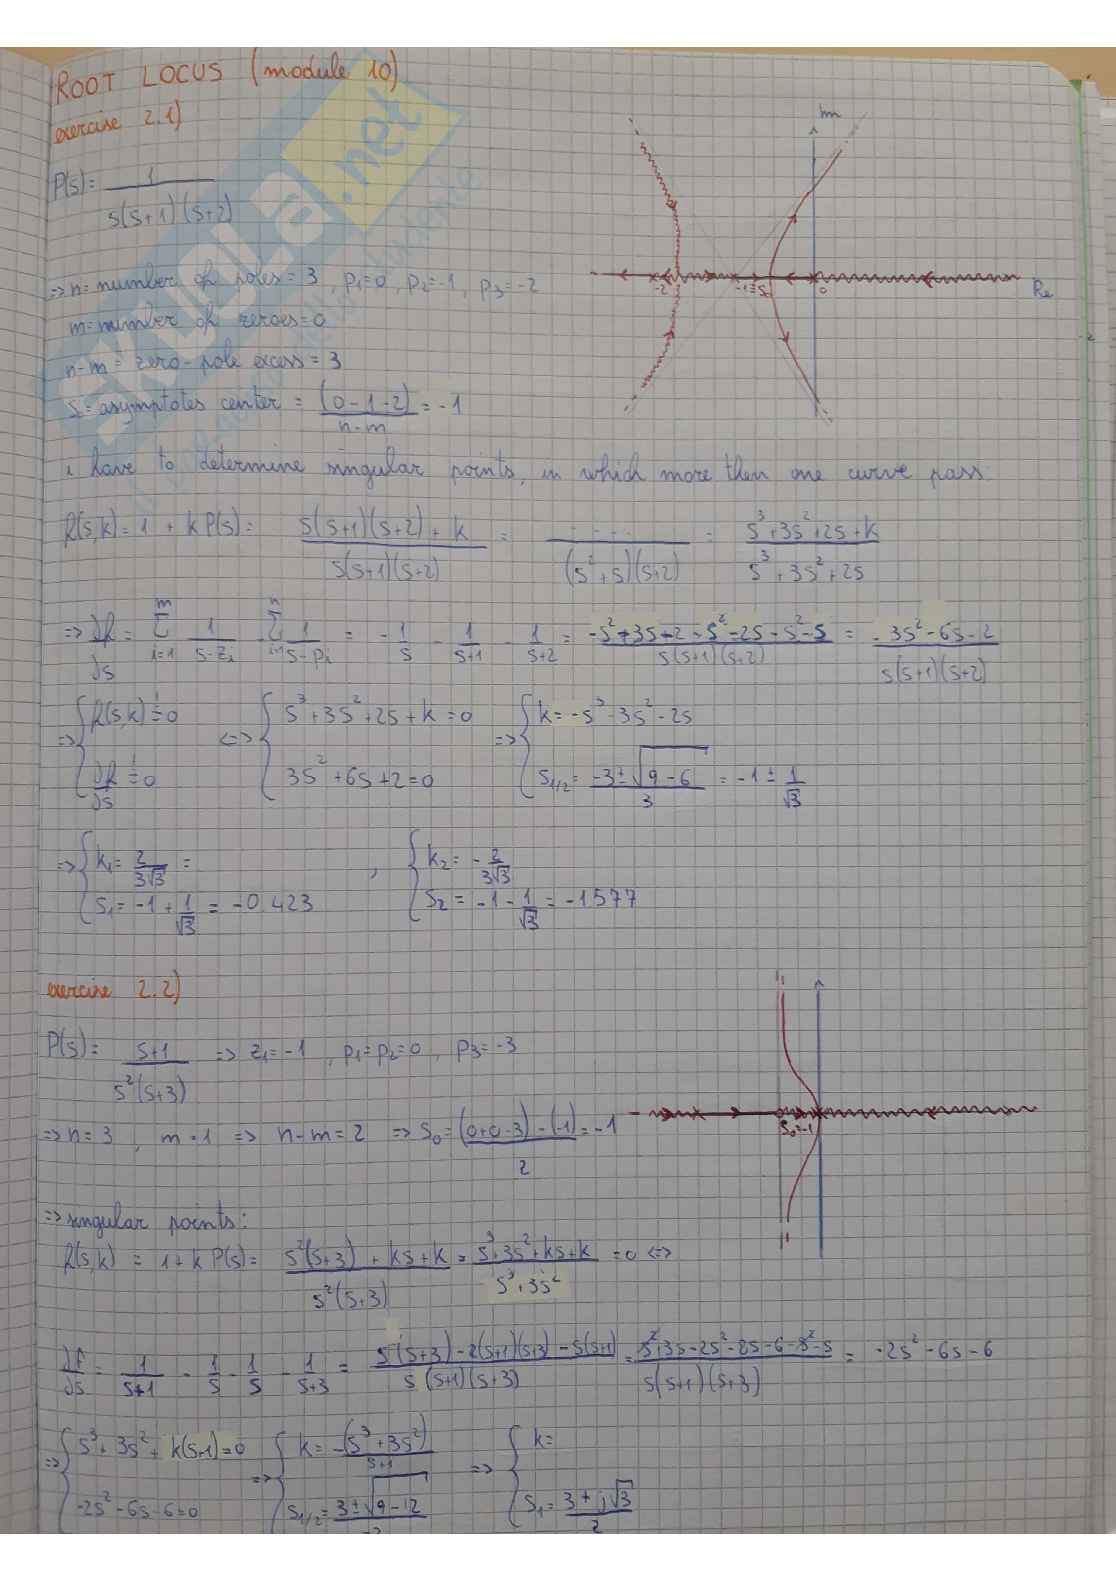 ROOT LOCUS (module 10)
exercise 2.1)
Im
P(s)= 1 / s(s+1)(s+2)
-2 -1=S₀ 0 Re
=> n= number of poles= 3, p₁=0, p₂=-1, p₃=-2
m= number of zeroes=0
n-m= zero-pole excess = 3
S= asymptotes center = (0-1-2) / n-m = -1
i have to determine singular points, in which more then one curve pass:
f(s,k)= 1 + k P(s)= s(s+1)(s+2) + k / s(s+1)(s+2) = .... / (s²+s)(s+2) = s³+3s²+2s+k / s³+3s²+2s
=> ∂f/∂s = Σ(i=1, m) 1/s-zᵢ - Σ(i=1, n) 1/s-pᵢ = -1/s - 1/s+1 - 1/s+2 = -s²-3s-2-s²-2s-s²-s / s(s+1)(s+2) = -3s²-6s-2 / s(s+1)(s+2)
=> { f(s,k) != 0 <=> { s³+3s²+2s+k=0 => { k= -s³-3s²-2s
∂f/∂s != 0 3s²+6s+2=0 s₁/₂= -3±√9-6 / 3 = -1 ± 1/√3
=> { k₁= 2/3√3 = , { k₂= -2/3√3
s₁= -1+1/√3 = -0.423 s₂= -1-1/√3 = -1.577
exercise 2.2)
P(s)= s+1 / s²(s+3) => z₁=-1, p₁=p₂=0, p₃=-3
S₀=-1
=> n=3, m=1 => n-m=2 => S₀= (0+0-3)-(-1) / 2 = -1
=> singular points:
f(s,k) = 1+k P(s)= s²(s+3) + ks+k / s²(s+3) = s³+3s²+ks+k / s³+3s² =0 <=>
∂f/∂s = 1/s+1 - 1/s - 1/s - 1/s+3 = s(s+3)-2(s+1)(s+3)-s(s+1) / s(s+1)(s+3) = s²+3s-2s²-8s-6-s²-s / s(s+1)(s+3) = -2s²-6s-6
=> { s³+3s²+k(s+1)=0 => { k= -(s³+3s²) / s+1 => { k=
-2s²-6s-6=0 s₁/₂= 3±√9-12 / -2 s₁= 3+j√3 / 2